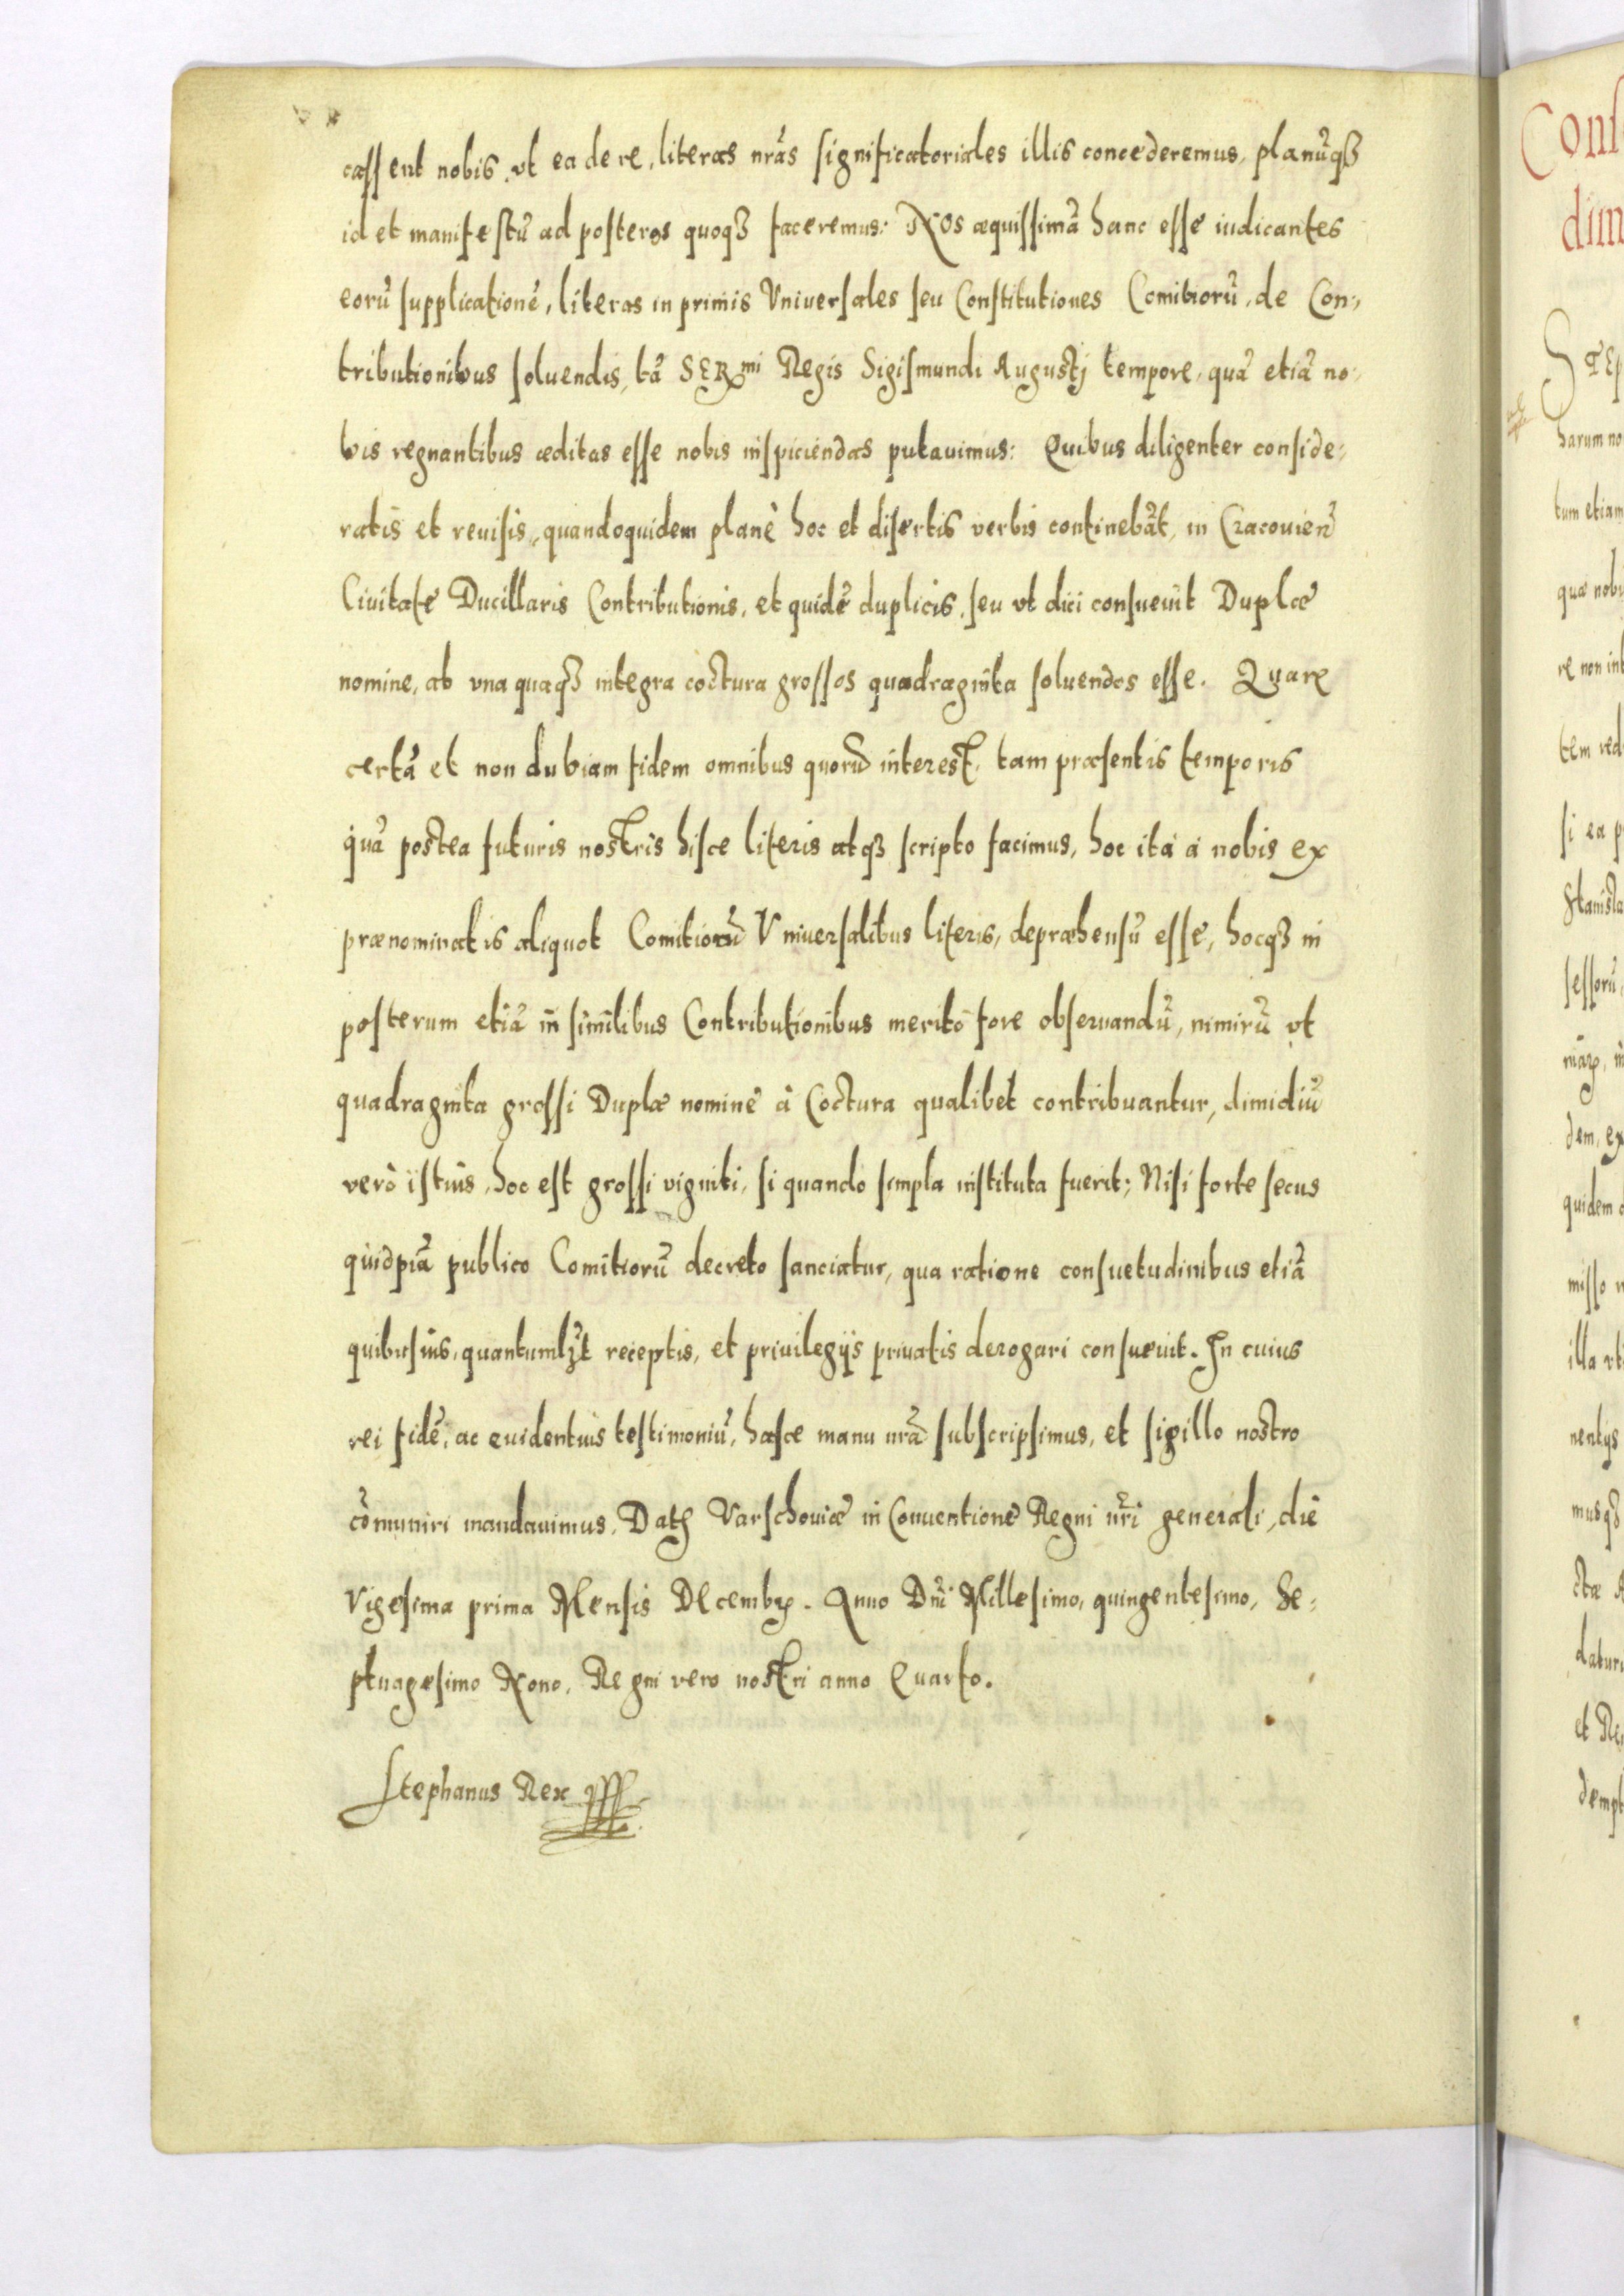 cassent nobis, vt ea de re, literas nr̃as significatoriales illis concederemus, planũqꝫ
id et manifestũ ad posteros quoqꝫ faceremus: Nos æquissimã hanc esse iudicantes
eorũ supplicationẽ, literas in primis Vniuersales seu Constitutiones Comitiorũ, de Con-
tributionibus soluendis, tã SERmi Regis Sigismundi Augustj tempore, quã etiã no-
bis regnantibus æditas esse nobis inspiciendas putauimus: Quibus diligenter conside-
ratis et reuisis, quandoquidem planè hoc et disertis verbis continebãt, in Cracouieñ
Ciuitate Ducillaris Contributionis, et quidẽ duplicis, seu vt dici consueuit Duplæ
nomine, ab vna quaqꝫ integra coctura grossos quadraginta soluendos esse. Quare
certã et non dubiam fidem omnibus quorũ interest, tam præsentis temporis
quã postea futuris nostris hisce literis atqꝫ scripto facimus, hoc ita à nobis ex
prænominatis aliquot Comitiorũ Vniuersalibus literis, depræhensũ esse, hocqꝫ in
posterum etiã in similibus Contributionibus meritò fore obseruandũ, nimirũ vt
quadraginta grossi Duplæ nomine à Coctura qualibet contribuantur, dimidiũ
verò istius, hoc est grossi viginti, si quando simpla instituta fuerit; Nisi forte secus
quidpiã publico Comitiorũ decreto sanciatur, qua ratione consuetudinibus etiã
quibusuis, quantumlꝫt receptis, et priuilegijs priuatis derogari consueuit. In cuius
rei fidẽ, ac euidentius testimoniũ, hasce manu nr̃a subscripsimus, et sigillo nostro
cõmuniri mandauimus. Datꝫ Varschouiæ in Conuentione Regni nr̃i generali, die
Vigesima prima Mensis Decembꝶ. Anno Dñi Millesimo, quingentesimo, Se-
ptuagesimo Nono, Regni vero nostri anno Quarto.
Stephanus Rex
Con
dim
STEp
harum no
tum etiam
quæ nobi
re non int
tem red
si ea p
Stanisla
sessorũ
dem, ex
quidem
misso
illa vt
nentijs
musqꝫ
ctæ
datur
et Re
dempt